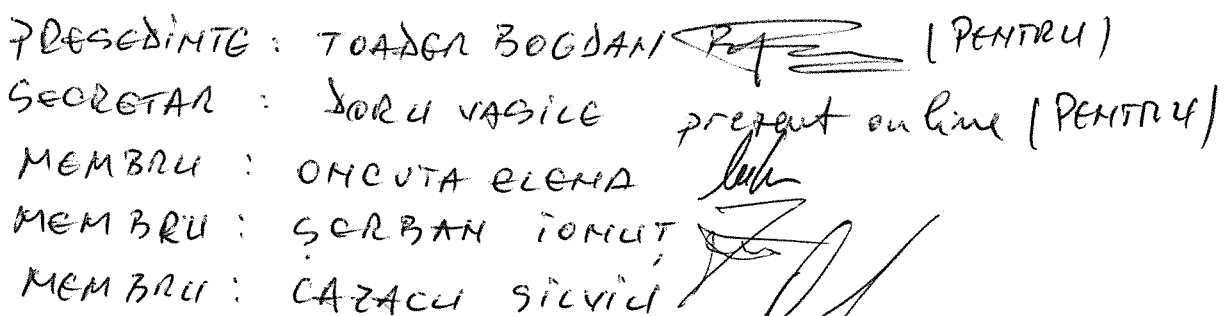 PRESEDINTE : TOADER BOGDAN (PENTRU)
SECRETAR : DORU VASILE prezent on line (PENTRU)
MEMBRU : ONCUTA ELENA
MEMBRU : ȘERBAN IONUȚ
MEMBRU : CAZACU SILVIU